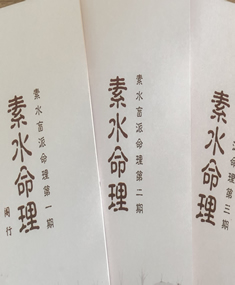 素水盲派命理第一期
素水命理
阁竹
素水盲派命理第二期
素水命理
素水命理
第三期